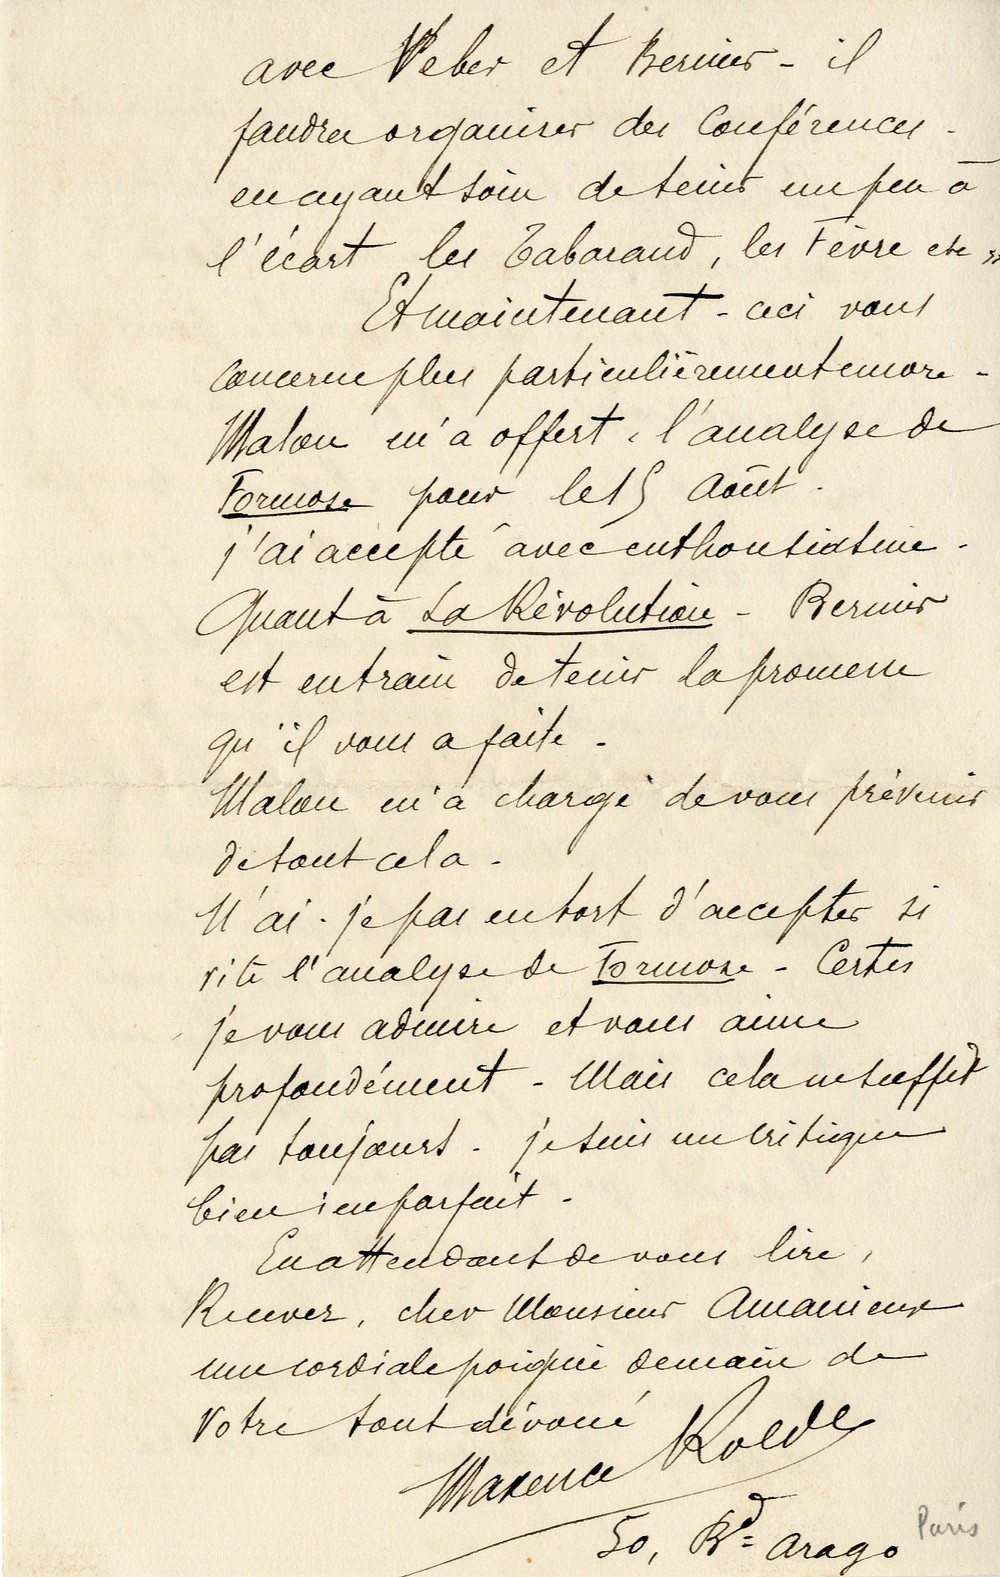 avec Veber et Bernier - il
faudra organiser des Conférences -
en ayant soin de tenir un peu à
l'écart les Tabarand, les Fèvre etc »
Et maintenant - ceci vous
concerne plus particulièrement encore -
Malon m'a offert, l'analyse de
Formose pour le 15 Août.
j'ai accepté avec enthousiasme -
Quant à La Révolution - Bernier
est en train de tenir la promesse
qu'il vous a faite -
Malon m'a chargé de vous prévenir
de tout cela -
N'ai-je pas eu tort d'accepter si
vite l'analyse de Formose - Certes
je vous admire et vous aime
profondément - Mais cela ne suffit
pas toujours - je suis un critique
bien imparfait -
En attendant de vous lire,
Recevez, cher Monsieur Amanieux
une cordiale poignée de main de
Votre tout dévoué
Maxence Roldes
50, Bd= Arago Paris